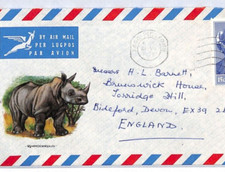 BY AIR MAIL
PER LUGPOS
PAR AVION
H. L. Barnett,
Brunswick House,
Torridge Hill,
Bideford, Devon, EX39 2
ENGLAND.